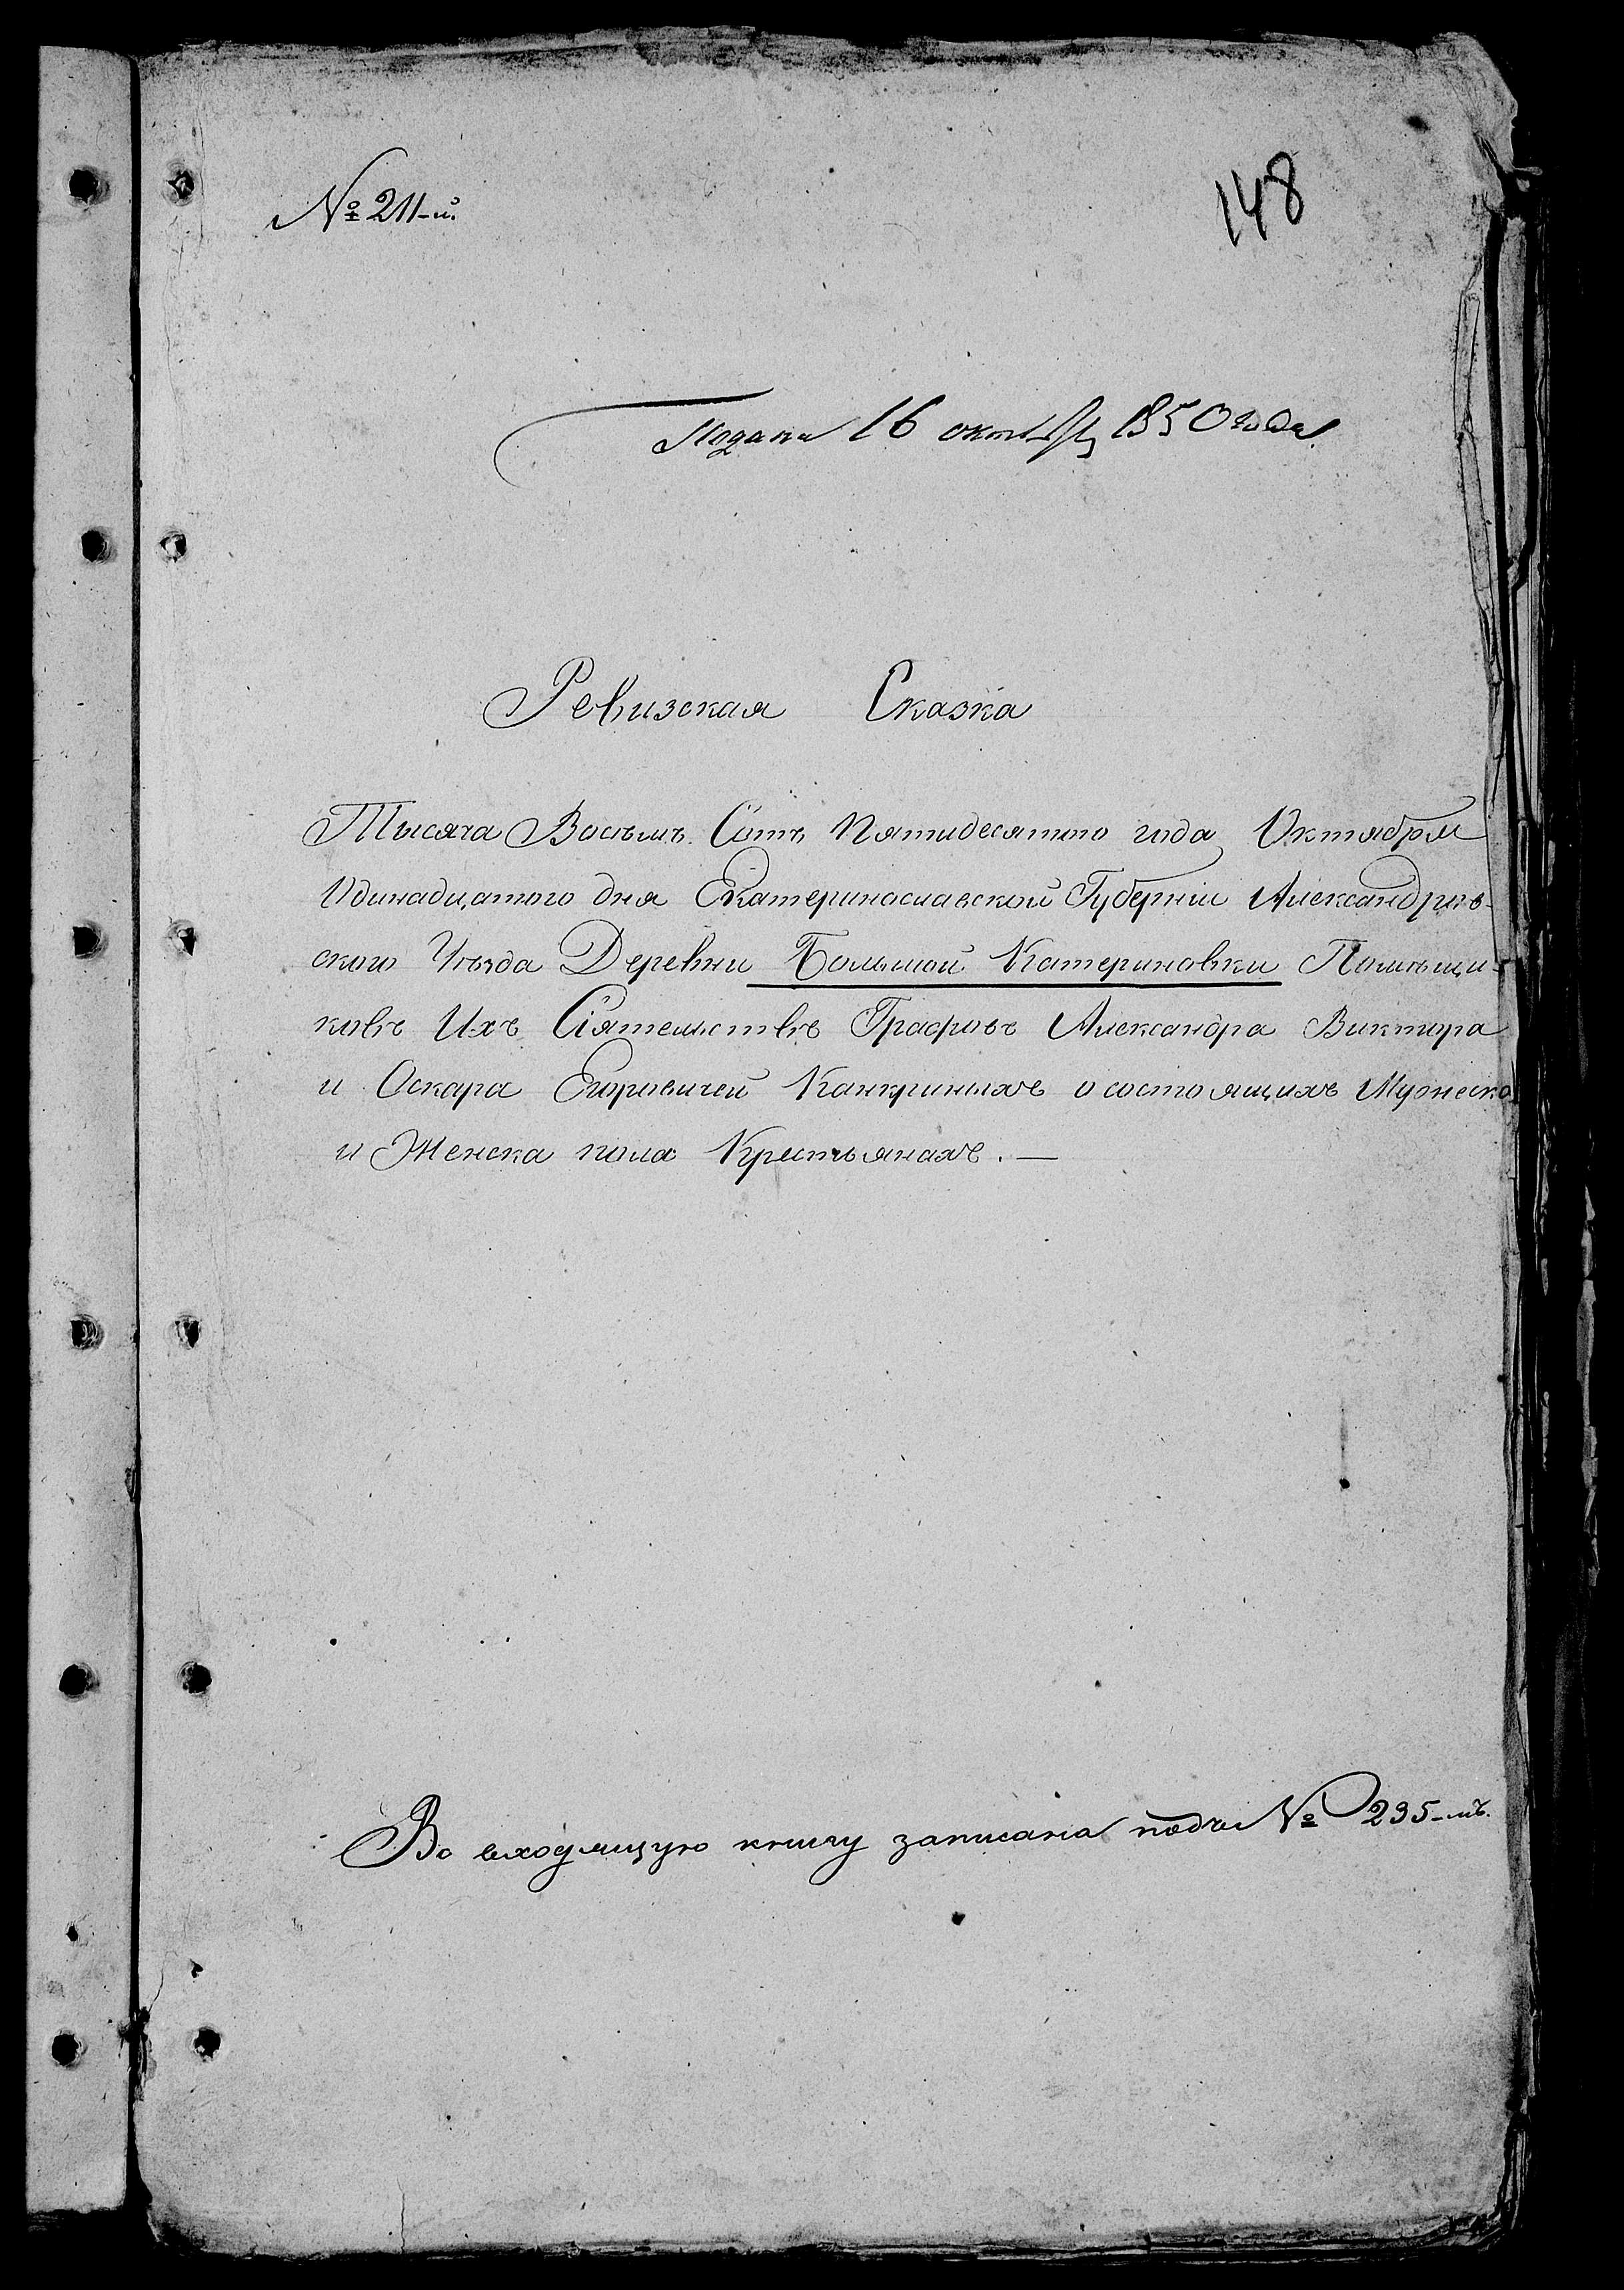 № 211-й.
148
Подана 16 октября 1850 года.
Ревизская Сказка
Тысяча Восемь Сотъ Пятидесятого года Октября
Одинадцатого дня Екатеринославской Губерніи Александров-
ского Уѣзда Деревни Большой Катериновки Помѣщи-
ковъ Ихъ Сіятельствъ Графовъ Александра Виктора
и Оскара Егоровичей Канкриныхъ о состоящихъ Мужеска
и Женска пола Крестьянахъ. —
Во входящую книгу записана подъ № 235-мъ.